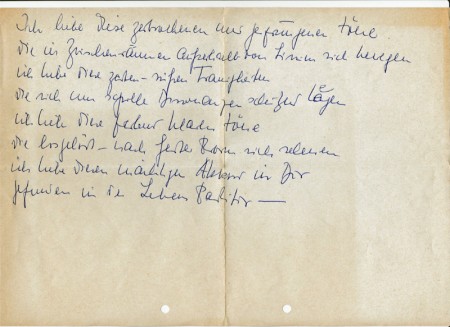 Ich liebe diese zerbrochenen nur gefangenen Töne
die in Zwischenräumen außerhalb von Linien sich bewegen
ich liebe diese zarten - süßen Traurigkeiten
die sich um schrille Dissonanzen schützend legen
ich liebe diese Töne
die losgelöst - nach sich sehnen
ich liebe diesen mächtigen Akkord in Dir
gefunden in der Lebens Partitur —